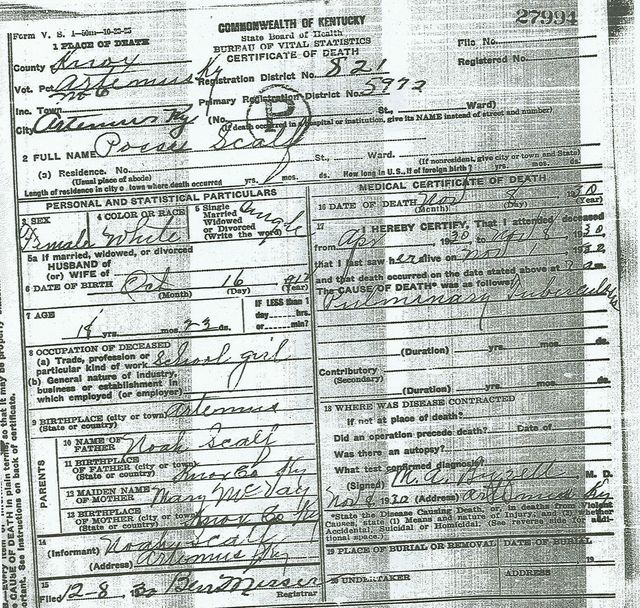 27991
Form V. S. 1-50m-10-23-25
COMMONWEALTH OF KENTUCKY
State Board of Health
BUREAU OF VITAL STATISTICS
CERTIFICATE OF DEATH
File No.
Registered No.
1 PLACE OF DEATH
County Knox
Vot. Pct. Artemus Ky
No 6
Registration District No. 821
Primary Registration District No. 5972
Inc. Town
City Artemus Ky (No. St., Ward)
(If death occurred in a hospital or institution, give its NAME instead of street and number)
P
2 FULL NAME Possie Scalf
(a) Residence. No. St., Ward.
(Usual place of abode) (If nonresident, give city or town and State)
Length of residence in city or town where death occurred yrs. mos. ds. How long in U.S., if of foreign birth? yrs. mos. ds.
PERSONAL AND STATISTICAL PARTICULARS
3 SEX
Female
4 COLOR OR RACE
White
5 Single
Married
Widowed
or Divorced
(Write the word)
Single
5a If married, widowed, or divorced
HUSBAND of
(or) WIFE of
6 DATE OF BIRTH Oct 16
(Month) (Day) (Year)
7 AGE
18 yrs. mos. 23 ds.
IF LESS than 1
day hrs.
or min?
8 OCCUPATION OF DECEASED
(a) Trade, profession or
particular kind of work School girl
(b) General nature of industry,
business or establishment in
which employed (or employer)
9 BIRTHPLACE (city or town) Artemus
(State or country)
PARENTS
10 NAME OF
FATHER Noah Scalf
11 BIRTHPLACE
OF FATHER (city or town)
(State or country) Knox Co Ky
12 MAIDEN NAME
OF MOTHER Mary McVay
13 BIRTHPLACE
OF MOTHER (city or town)
(State or country) Knox Co Ky
14
(Informant) Noah Scalf
(Address) Artemus Ky
15
Filed 12-8, 30 Ben Messer
Registrar
MEDICAL CERTIFICATE OF DEATH
16 DATE OF DEATH Nov 1930
(Month) (Day) (Year)
17
I HEREBY CERTIFY, That I attended deceased
from Apr 1930 to 1930
that I last saw her alive on Nov
and that death occurred on the date stated above at
The CAUSE OF DEATH* was as follows:
Pulminary Tuberculosis
(Duration) yrs. mos. ds.
Contributory
(Secondary)
(Duration) yrs. mos. ds.
18 WHERE WAS DISEASE CONTRACTED
if not at place of death?
Did an operation precede death? Date of
Was there an autopsy?
What test confirmed diagnosis?
(Signed) M. D.
Nov 8 1930 (Address) Artemus Ky
*State the Disease Causing Death, or, in deaths from Violent
Causes, state (1) Means and nature of Injury,
Accidental, Suicidal or Homicidal. (See reverse side for addi-
tional space.)
19 PLACE OF BURIAL OR REMOVAL DATE OF BURIAL
19
20 UNDERTAKER ADDRESS